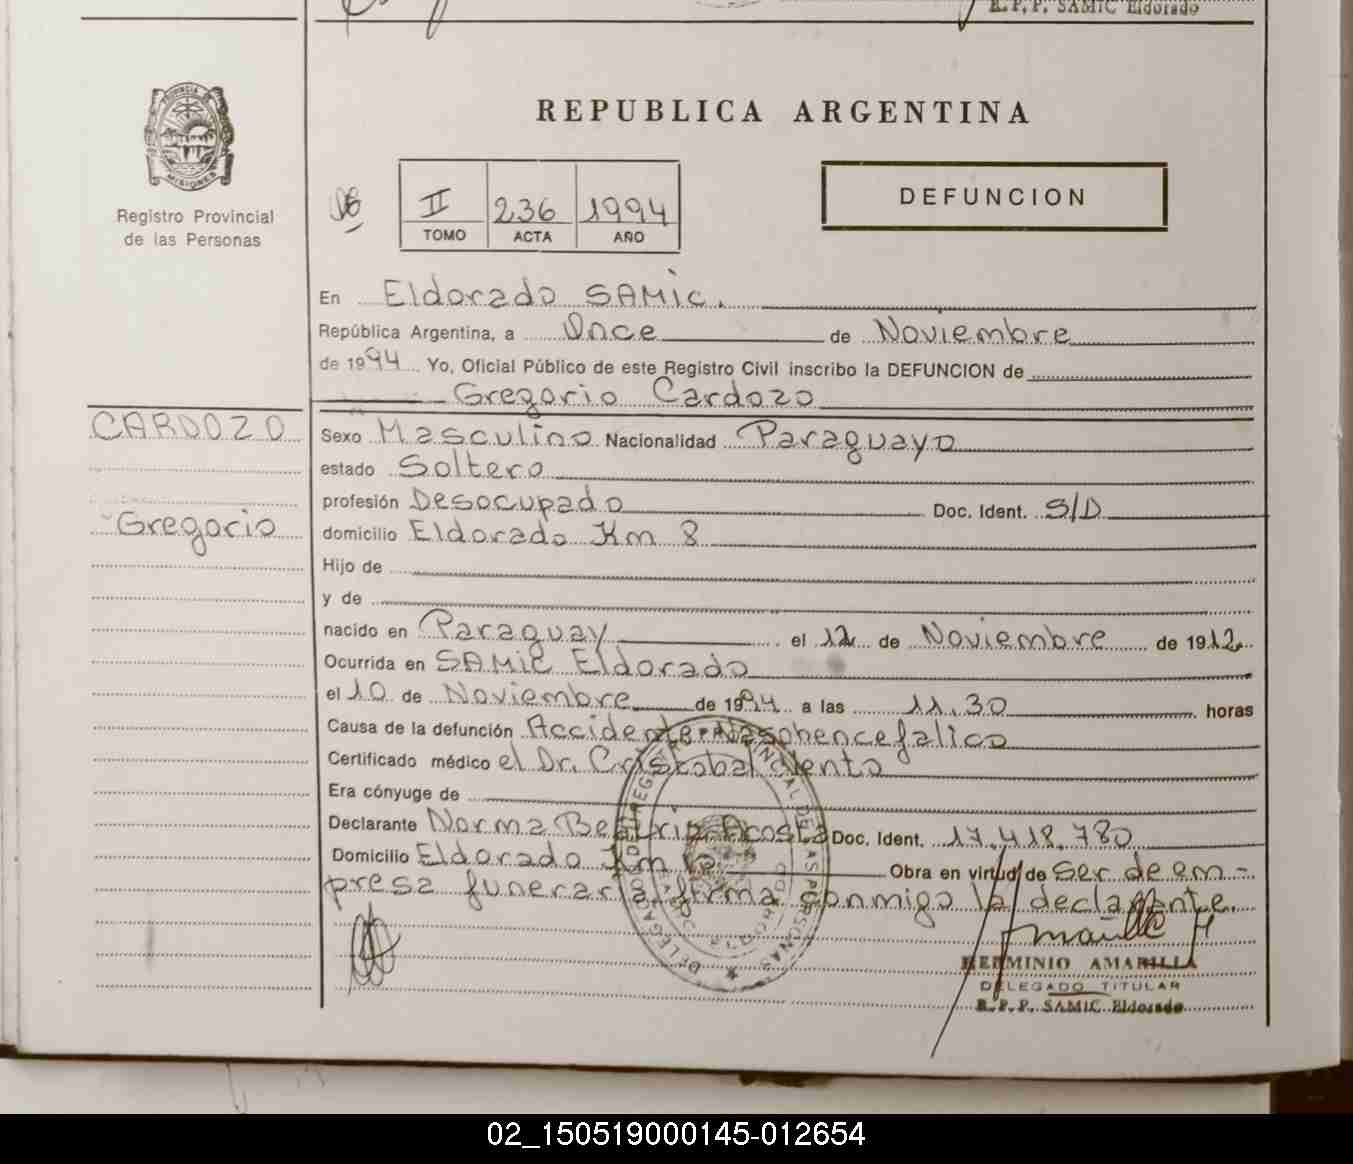 R.P.P. SAMIC Eldorado
PROVINCIA DE
MISIONES
Registro Provincial
de las Personas
REPUBLICA ARGENTINA
DEFUNCION
II 236 1994
TOMO ACTA AÑO
En Eldorado SAMIC.
República Argentina, a Once de Noviembre
de 1994 Yo, Oficial Público de este Registro Civil inscribo la DEFUNCION de
Gregorio Cardozo
CARDOZO
Gregorio
Sexo Masculino Nacionalidad Paraguayo
estado Soltero
profesión Desocupado Doc. Ident. S/D
domicilio Eldorado Km 8
Hijo de
y de
nacido en Paraguay el 12 de Noviembre de 1912
Ocurrida en SAMIC Eldorado
el 10 de Noviembre de 1994 a las 11.30 horas
Causa de la defunción Accidente Vasohencefalico
Certificado médico el Dr. Cristobal Vento
Era cónyuge de
Declarante Norma Beatriz Acosta Doc. Ident. 17.418.780
Domicilio Eldorado Km Obra en virtud de Ser de em-
presa funeraria firma conmigo la declarante.
HERMINIO AMARILLA
DELEGADO TITULAR
R.P.P. SAMIC Eldorado
02_150519000145-012654